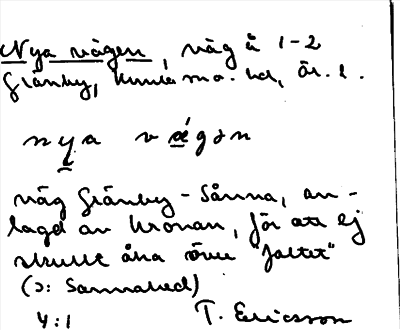 Nya vägen, väg å 1-2
Gränby, Kumla sn. hd, ör. l.
nya vä́gən
väg Gränby - Sånna, an-
lagd av Kronan, för att ej
skulle åka över "fältet"
(ɔ: Sannahed)
4:1 T. Ericsson